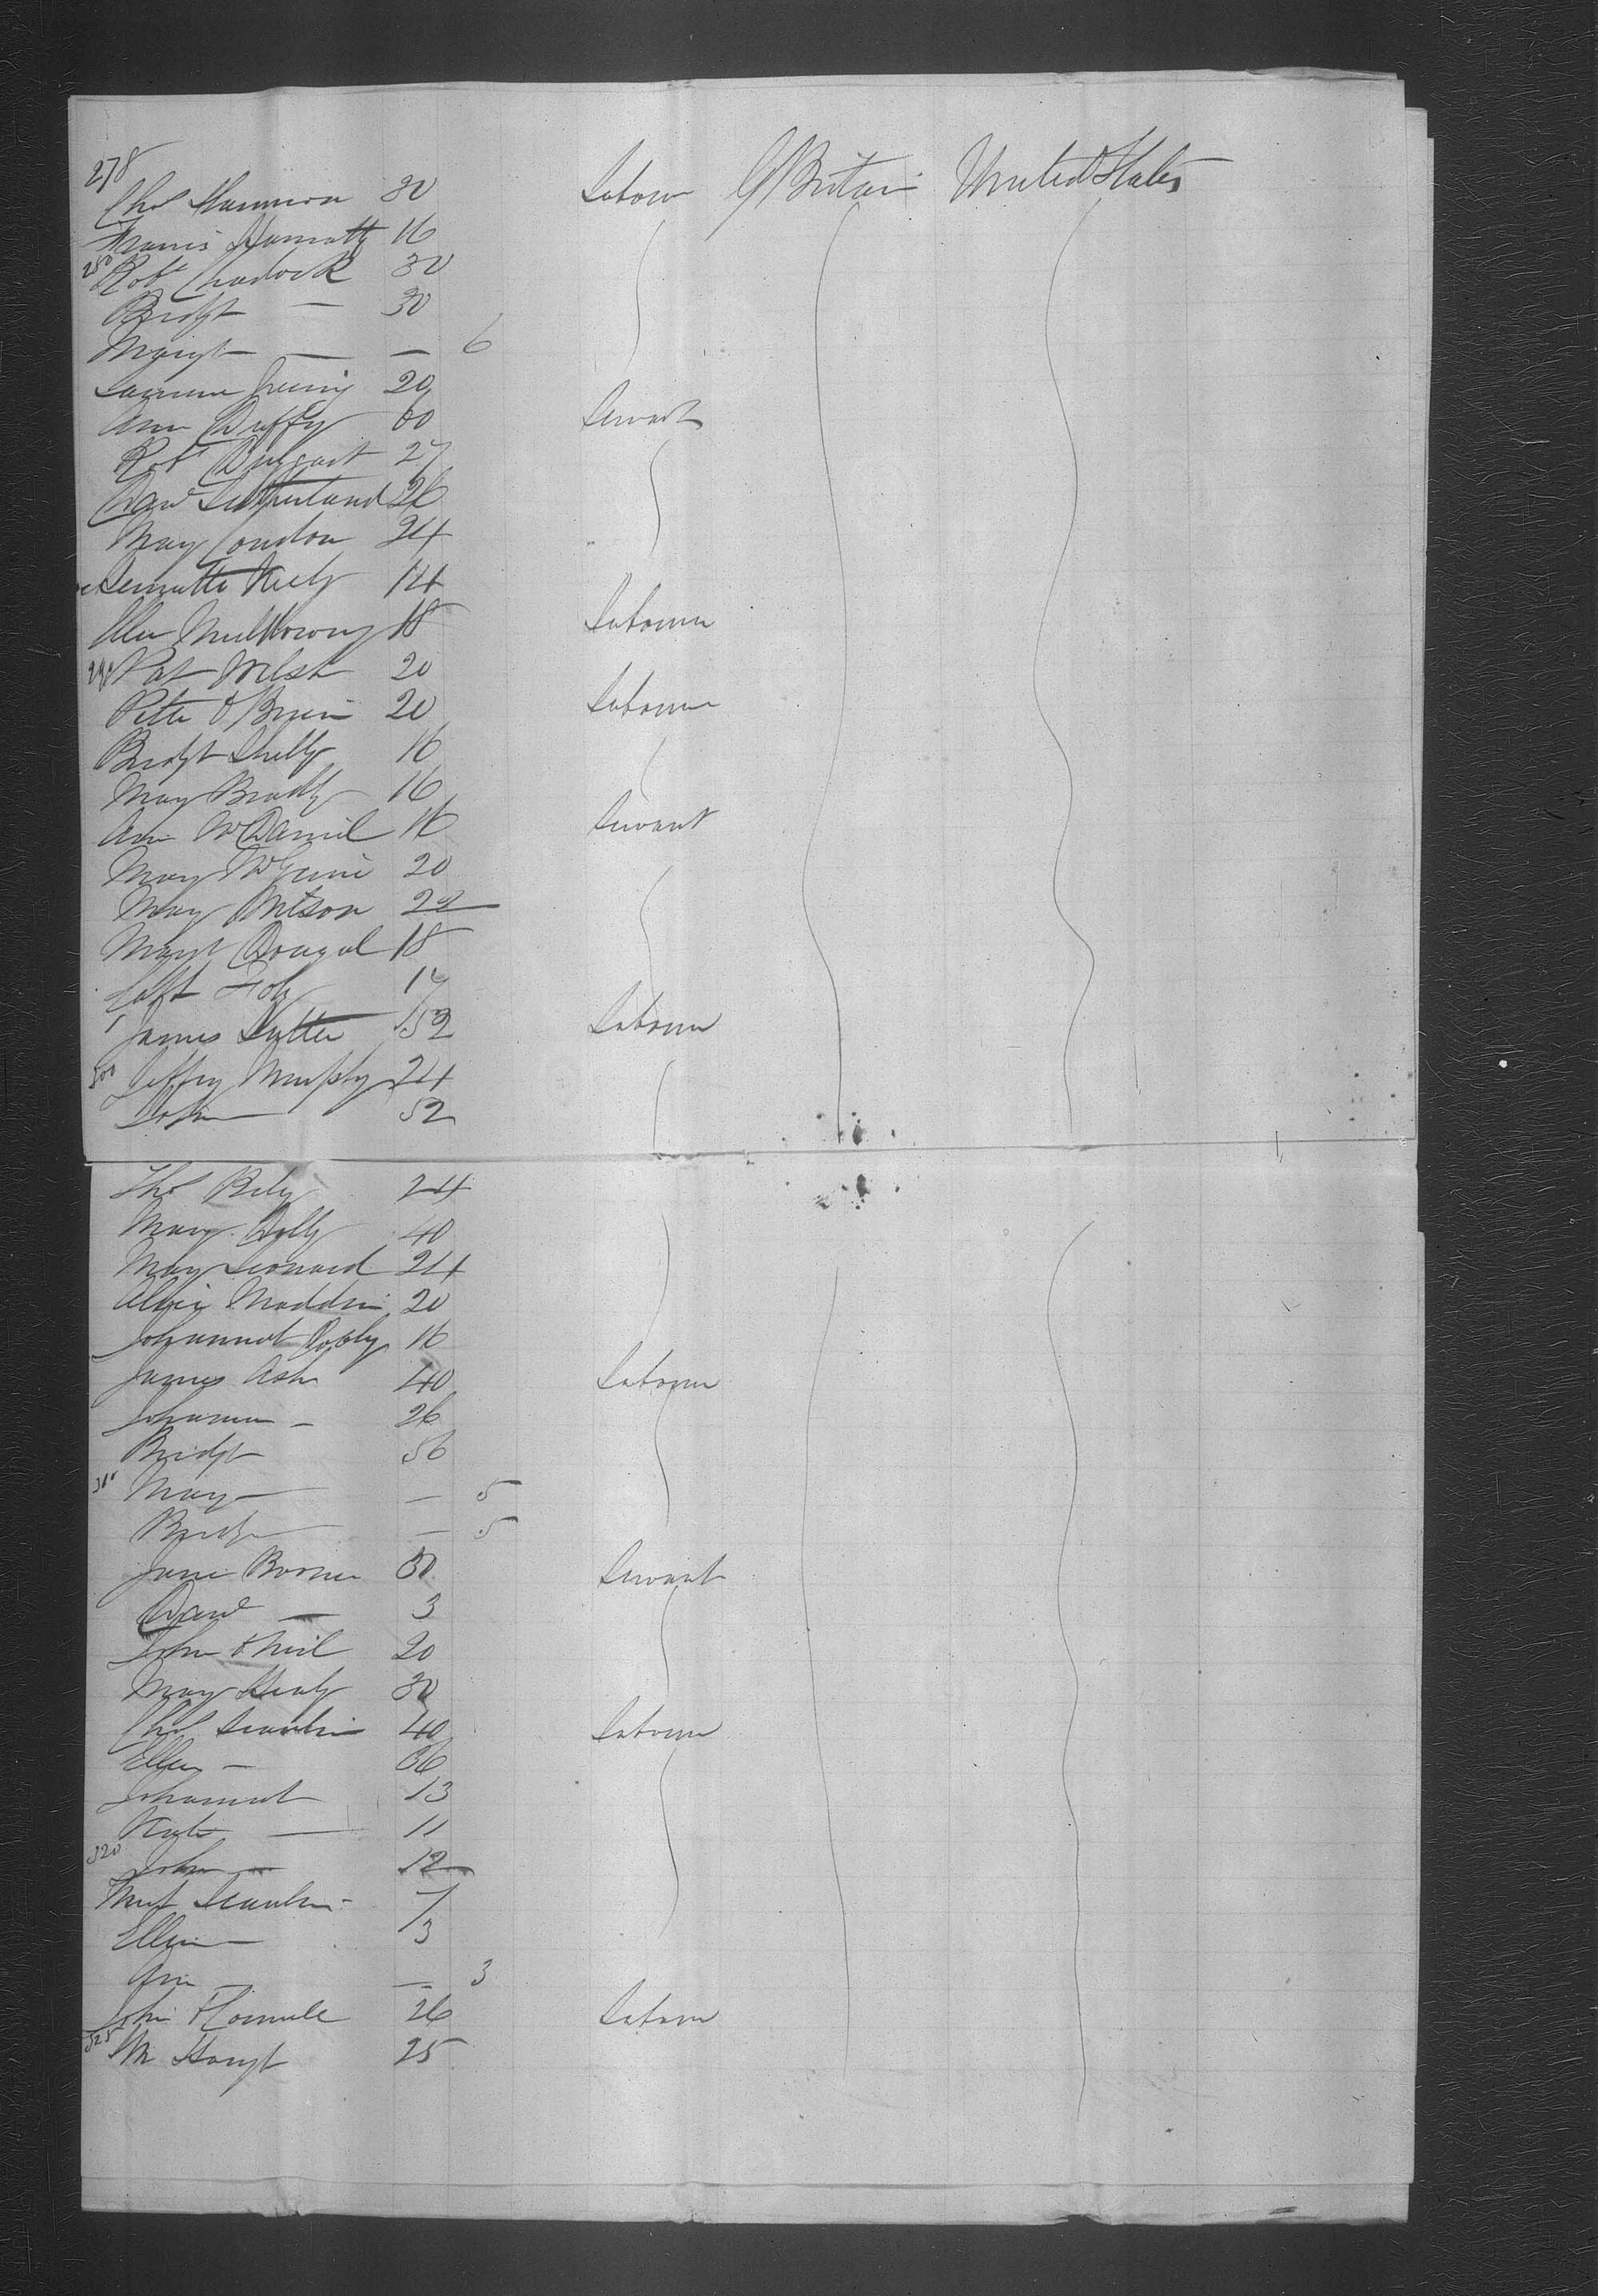 278
Chas Shannon 30 Labour G Britain United States
Francis Hamatty 16
280 Robt Chadock 30
Bridgt — 30
Margt — — 6
Ann Duffy 60 Servant
Robt 27
Davd Sutherland 26
May Condon 24
Keely 14
Ellen Mulldowny 18 Labourer
290 Pat Welsh 20
Peter O'Brien 20 Labourer
Bridgt Shelly 16
May Bradly 16
Ann McDaniel 16 Servant
May McGuire 20
May Wilson 22
Margt Dougal 18
Foly 17
James 52 Labourer
300 Jeffry Murphy 24
John — 52
Thos Rily 24
Mary Dolly 40
May Leonard 24
Alice Maddin 20
Johannat 16
James Ash 40 Labourer
Johanna — 26
Bridgt 56
310 May — — 5
Bridgt — — 5
Jane 30 Servant
Davd — 3
John O'Neil 20
May Healy 30
Chas Scanlin 40 Labourer
Ellen — 36
Johannat 13
Kate — 11
320 John — 12
Scanlin - 7
Ellen — 3
Ann — — 3
John 26 Labour
325 25